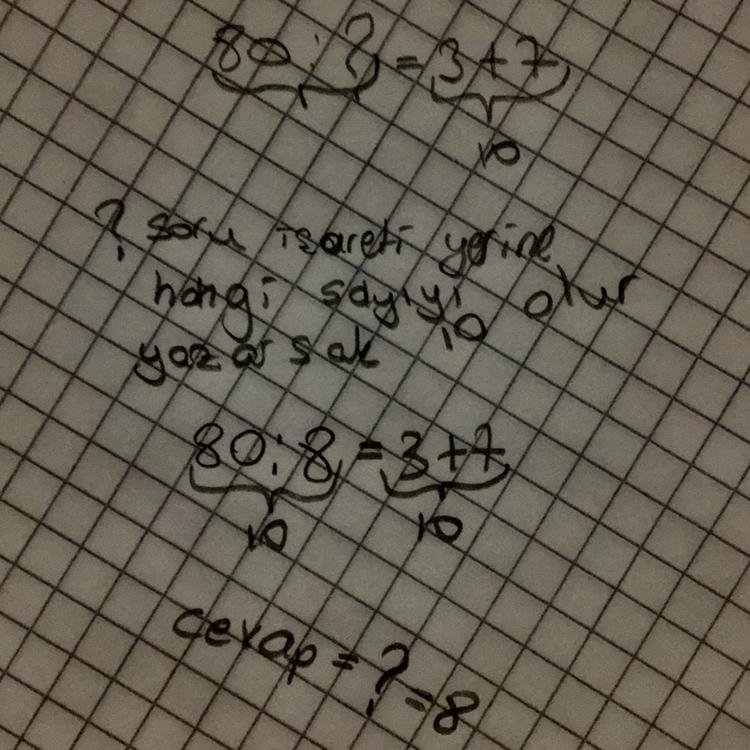 80:? = 3+7
10
? soru işareti yerine
hangi sayıyı
yazarsak 10 olur
80:8 = 3+7
10 10
cevap = ? = 8